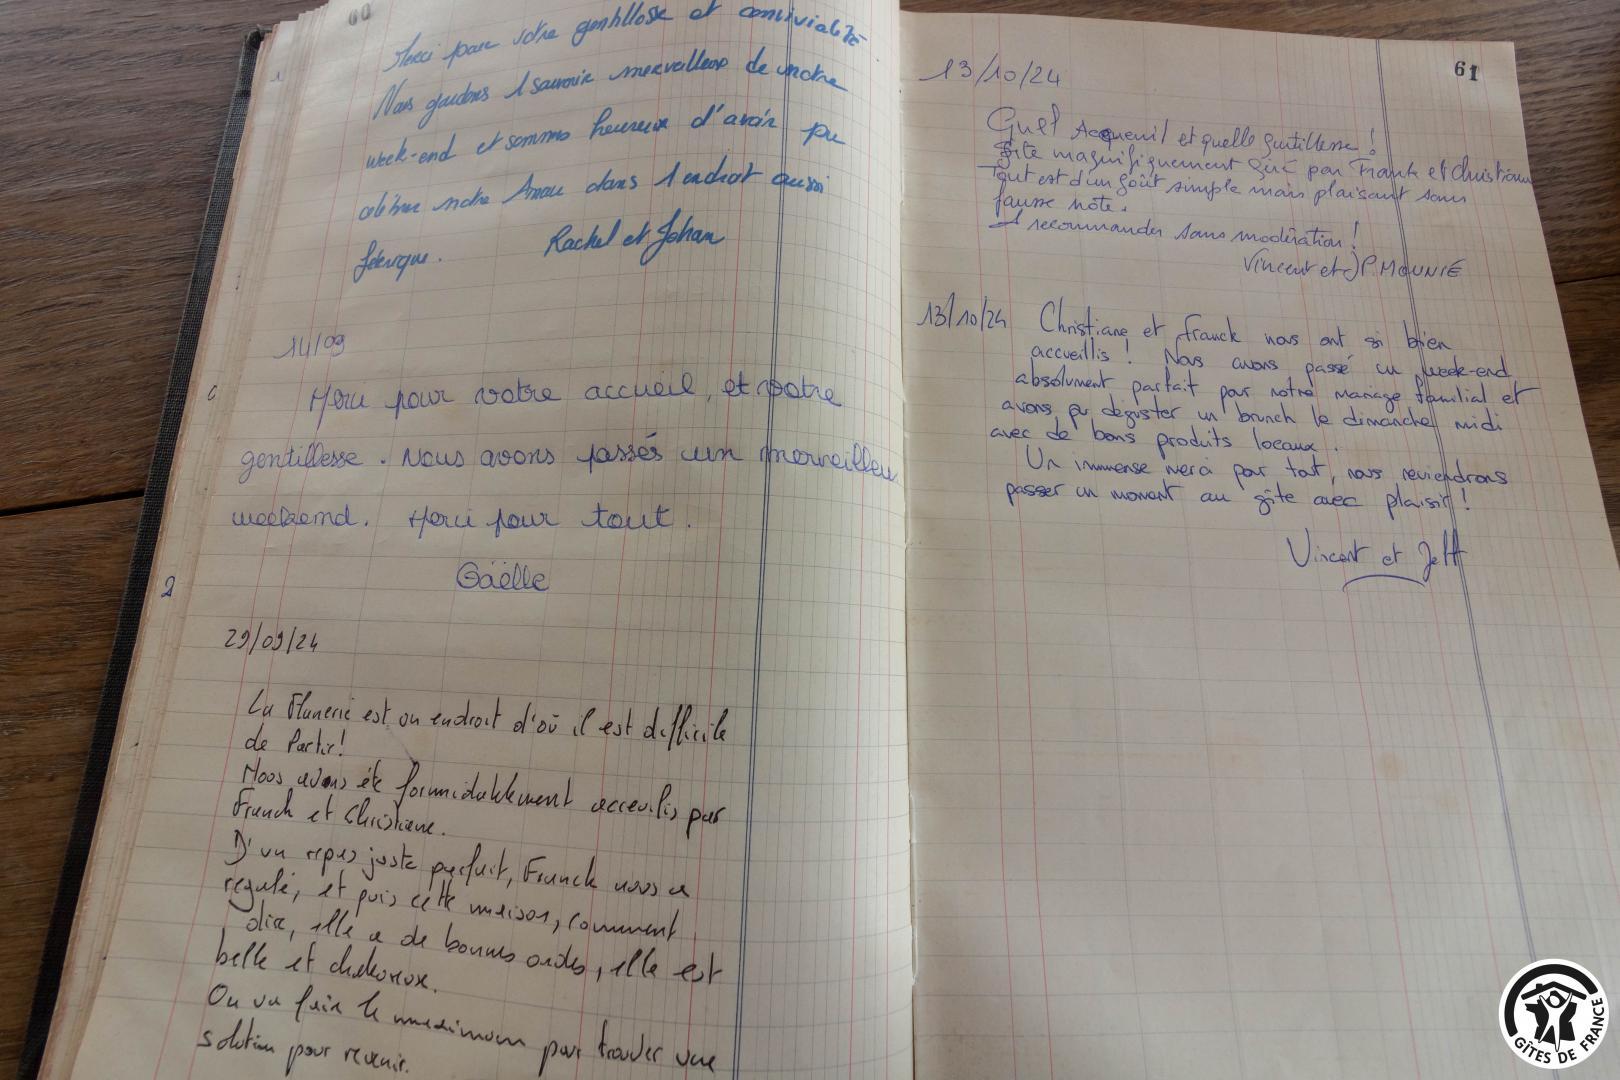 60
Merci pour votre gentillesse et convivialité
Nous gardons 1 souvenir merveilleux de notre
week-end et sommes heureux d'avoir pu
célébrer notre Amour dans 1 endroit aussi
féérique. Rachel et Johan
14/09
Merci pour votre accueil, et votre
gentillesse. Nous avons passés un merveilleu
weekend. Merci pour tout.
Gaëlle
2
29/09/24
La Flanerie est un endroit d'où il est difficile
de Partir!
Nous avons été formidablement acceuilis par
Franck et Christiane.
D'un repas juste parfait, Franck nous a
regalé, et puis cette maison, comment
dire, elle a de bonnes ondes, elle est
belle et chaleureux.
On va faire le maximum pour trouver une
solution pour revenir.
61
13/10/24
Quel Acqueuil et quelle gentillesse!
Gîte magnifiquement Géré par Frank et Christiane
Tout est d'un goût simple mais plaisant sans
fausse note.
A recommander sans modération!
Vincent et JP. MOUNIÉ
13/10/24 Christiane et Franck nous ont si bien
accueillis! Nous avons passé un week-end
absolument parfait pour notre mariage familial et
avons pu déguster un brunch le dimanche midi
avec de bons produits locaux.
Un immense merci pour tout, nous reviendrons
passer un moment au gîte avec plaisir!
Vincent et Jeff
GÎTES DE FRANCE